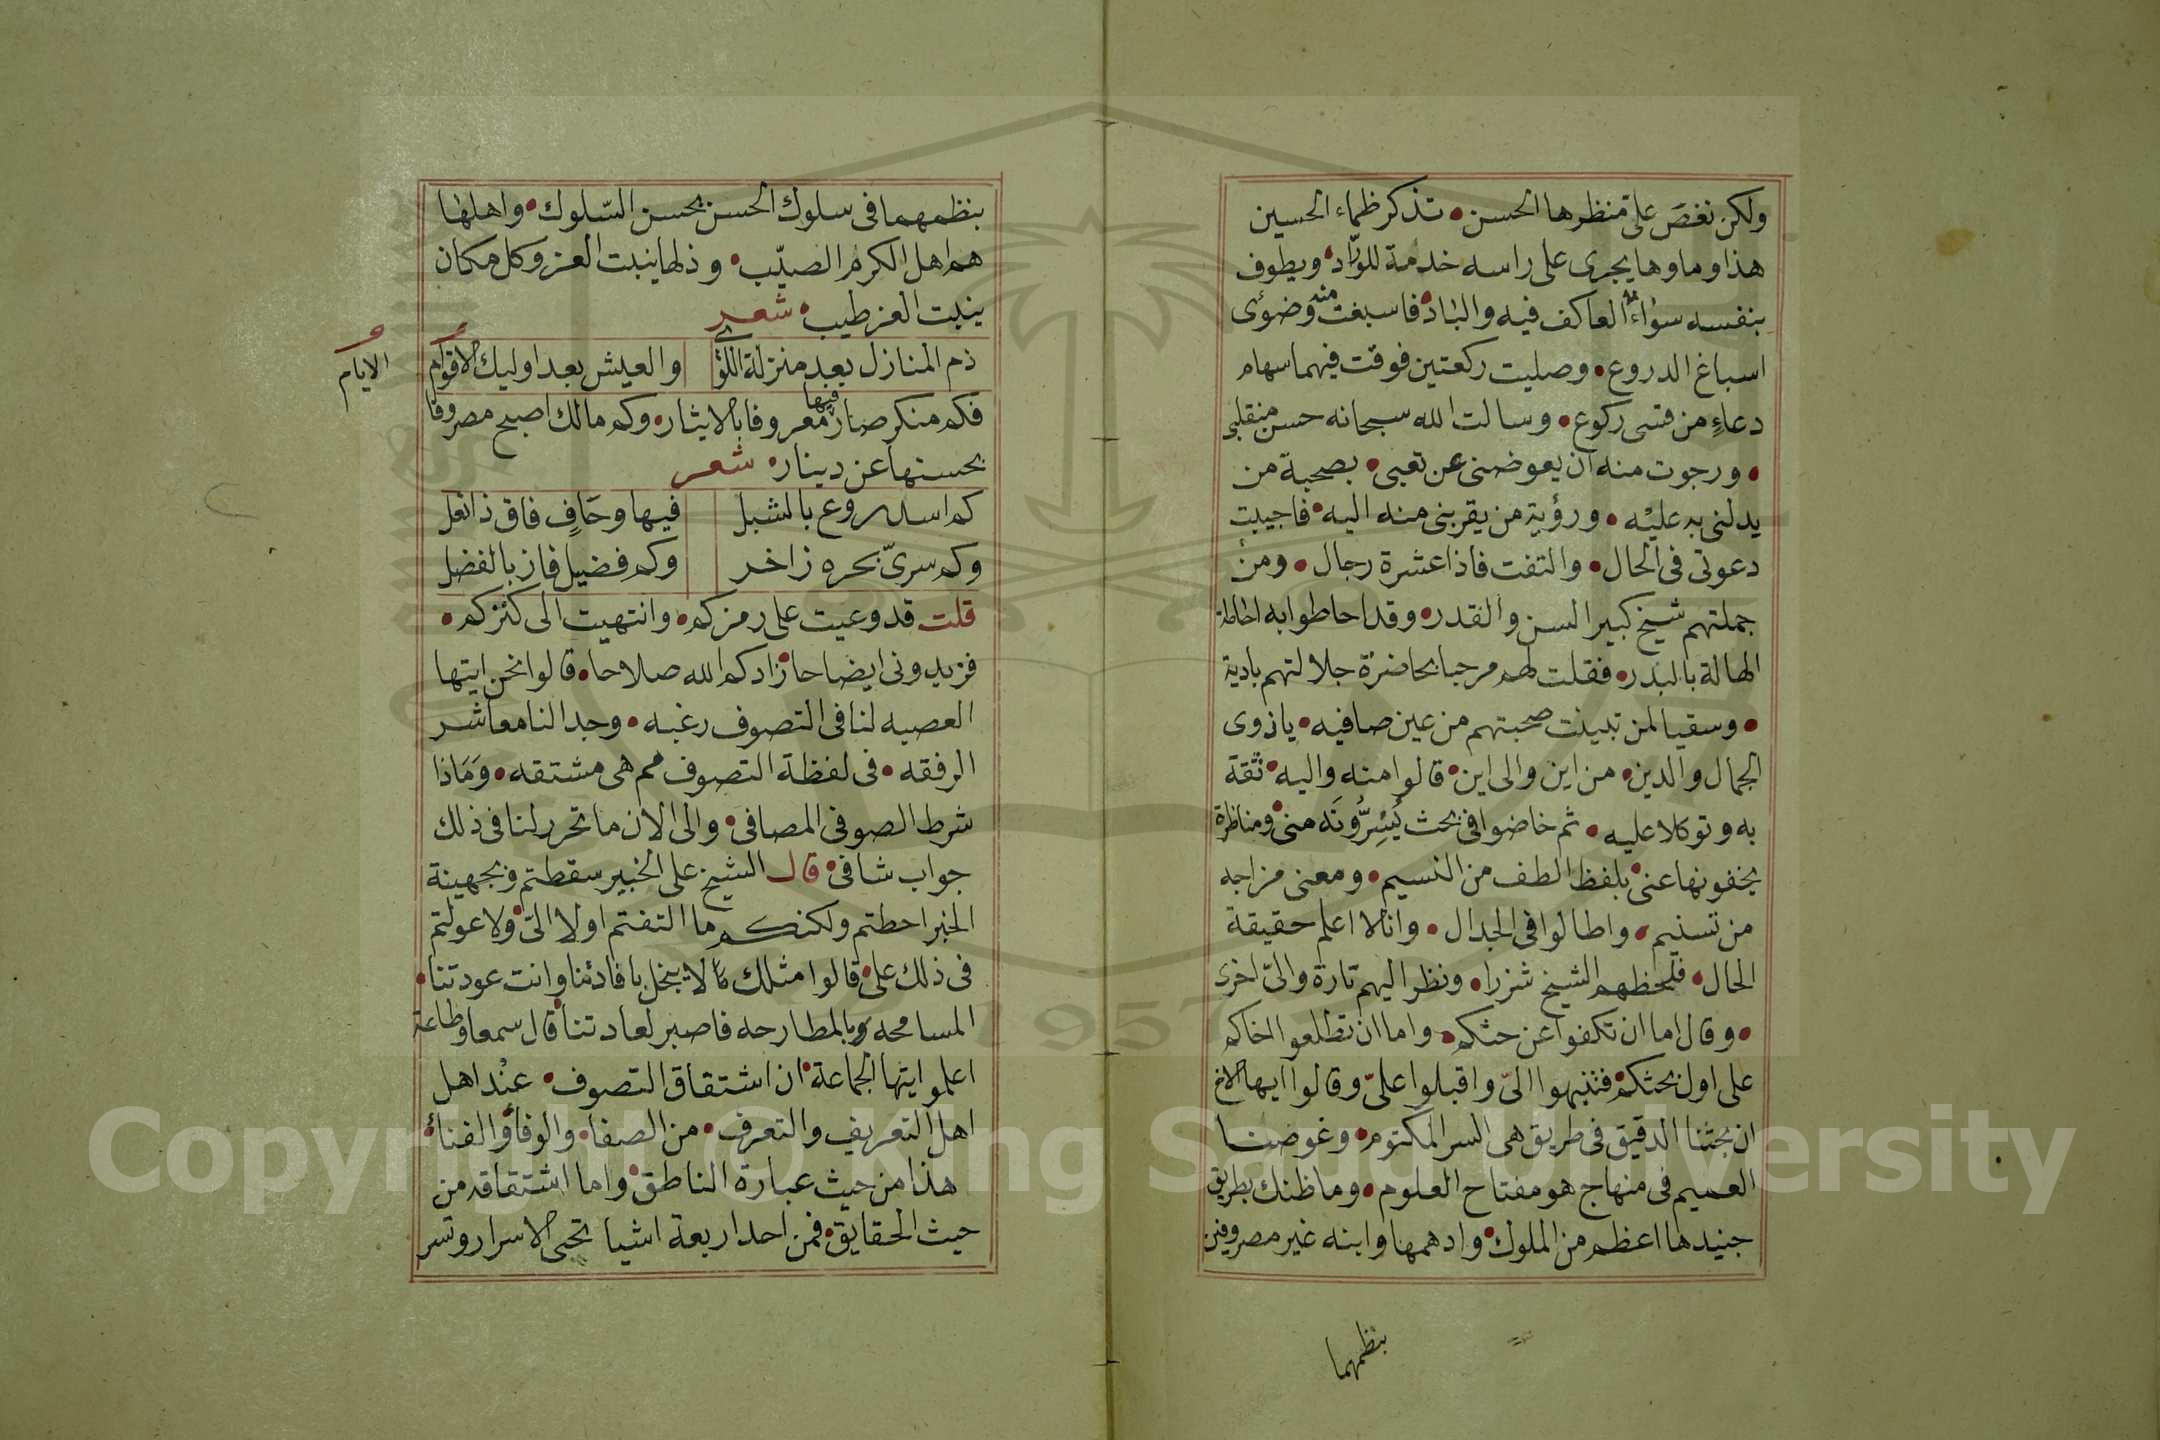 ولكن نغص على منظرها الحسن • تذكر ظماء الحسين
هذا وماوها يجرى على راسه خدمة للورّاد • ويطوف
بنفسه سواء العاكف فيه والباد • فاسبغت منه وضوئى
اسباغ الدروع • وصليت ركعتين فوقت فيهما سهام
دعاءٍ من قسى ركوع • وسالت الله سبحانه حسن منقلبى
• ورجوت منه ان يعوضنى عن تعبى • بصحبة من
يدلنى به عليْه • ورؤية من يقربنى منه اليه • فاجيبت
دعوتى فى الحال • والتفت فاذا عشرة رجال • ومن
جملتهم شيخ كبير السن والقدر • وقد احاطوا به احاطة
الهالة بالبدر • فقلت لهم مرحبا بحاضرة جلالتهم بادية
• وسقيا لمن تبينت صحبتهم من عين صافيه • ياذوى
الجمال والدين • من اين والى اين • قالوا منه واليه • ثقة
به وتوكلا عليه • ثم خاضوا فى بحث يُسِرُّونَه منى • ومناظرة
يخفونها عنى • بلفظ الطف من النسيم • ومعنى مزاجه
من تسنيم • واطالوا فى الجدال • وانا لا اعلم حقيقة
الحال • فلحظهم الشيخ شزرا • ونظر اليهم تارة والىّ اخرى
• وقال اما ان تكفوا عن حثكم • واما ان تطلعوا اخاكم
على اول بحثكم • فتنبهوا الىّ واقبلوا علىّ وقالوا ايها الاخ
ان بحثنا الدقيق فى طريق هى السر المكتوم • وغوصنا
العميم فى منهاج هو مفتاح العلوم • وما ظنك بطريق
جنيدها اعظم من الملوك • وادهمها وابنه غير مصروفين
بنظمهما
بنظمهما فى سلوك الحسن بحسن السّلوك • واهلها
هم اهل الكرم الصيّب • وذلها ينبت العز وكل مكان
ينبت العز طيب • شعر
ذم المنازل بعد منزلة اللوى والعيش بعد اوليك الاقوام
الايام
فكم منكر صار فيها معروفا بالايثار • وكم مالك اصبح مصروفا
بحسنها عن دينار • شعر
كم اسد روع بالشبل فيها وحَافٍ فاق ذا نعل
وكم سرىّ بحره زاخر وكم فضيل فاز بالفضل
قلت قد وعيت على رمزكم • وانتهيت الى كنزكم •
فزيدونى ايضاحا • زادكم الله صلاحا • قالوا نحن ايتها
العصبه لنا فى التصوف رغبه • وجدالنا معاشر
الرفقه • فى لفظة التصوف مم هى مشتقه • وَمَاذا
شرط الصوفى المصافى • والى الان ما تحرر لنا فى ذلك
جواب شافى • قال الشيخ على الخبير سقطتم وبجهينة
الخبر احطتم ولكنكم ما التفتم اولا الىّ • ولا عولتم
فى ذلك علىّ • قالوا مثلك لا يبخل بافادتنا وانت عودتنا •
المسامحه وبالمطارحه فاصبر لعادتنا • قال سمعا وطاعة
اعلموا ايتها الجماعة • ان اشتقاق التصوف • عنْد اهل
اهل التعريف والتعرف • من الصفا • والوفاء والفناء •
هذا من حيث عبارة الناطق • واما اشتقاقه من
حيث الحقايق • فمن احد اربعة اشيا تحيى الاسرار وتسر
Copyright © King Saud University
1957